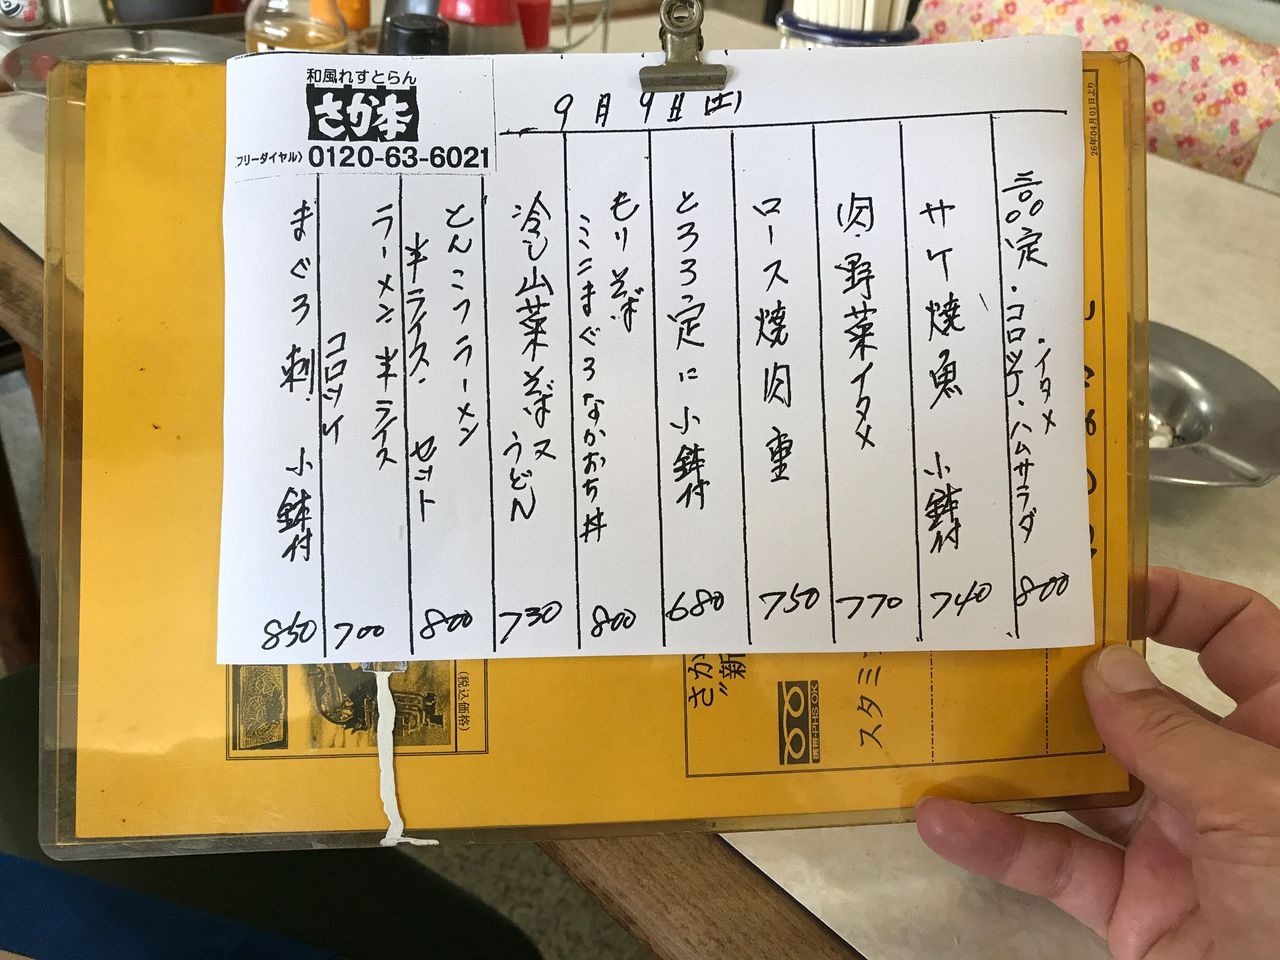 和風れすとらん
さか本
(フリーダイヤル) 0120-63-6021
9月9日(土)
三〇〇定・コロッケ・ハムサラダ
・イタメ
800
サケ焼魚 小鉢付
740
肉・野菜イタメ
770
ロース焼肉重
750
とろろ定に小鉢付
680
もりそば
ミニまぐろなかおち丼
800
冷し山菜そば又
うどん
730
とんこつラーメン
半ライス・セット
800
ラーメン半ライス
コロッケ
700
まぐろ刺 小鉢付
850
26年04月01日より
(税込価格)
さか
"新
携帯・PHS OK
スタミ